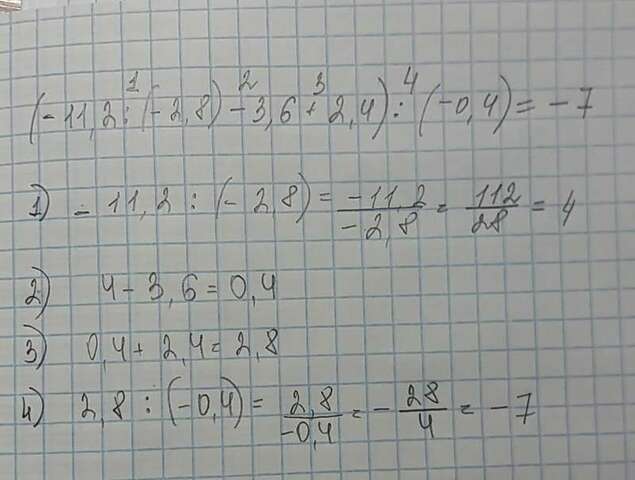 1 2 3 4
(-11,2 : (-2,8) - 3,6 + 2,4) : (-0,4) = -7
1) -11,2 : (-2,8) = -11,2/-2,8 = 112/28 = 4
2) 4 - 3,6 = 0,4
3) 0,4 + 2,4 = 2,8
4) 2,8 : (-0,4) = 2,8/-0,4 = -28/4 = -7